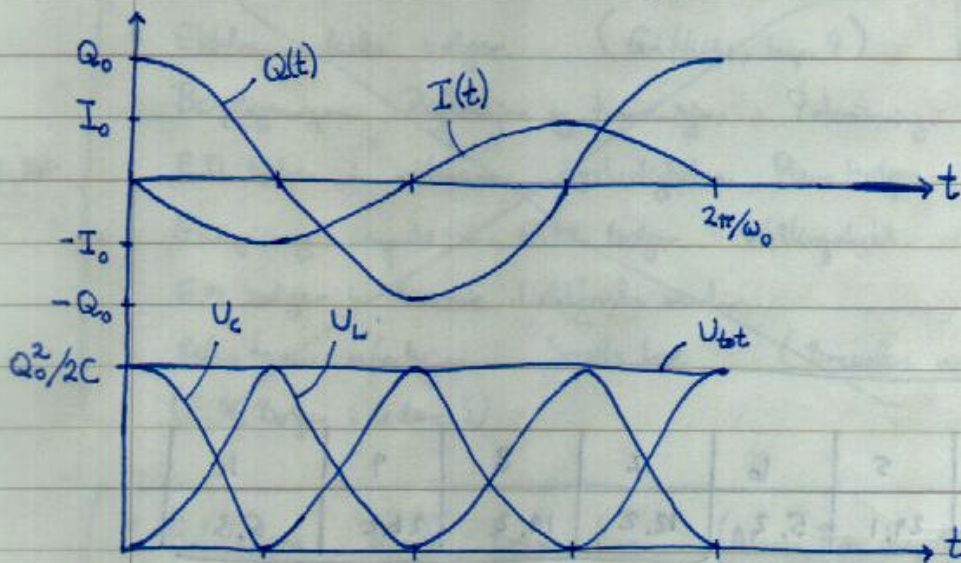 Q₀
Q(t)
I₀
I(t)
t
2π/ω₀
-I₀
-Q₀
U_C
U_L
U_tot
Q₀²/2C
t